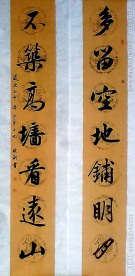 多留空地鋪明月
不築高墻看遠山